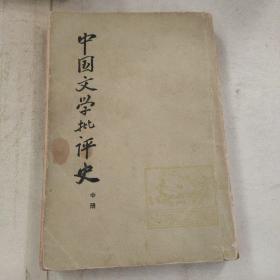 中国文学批评史
中册